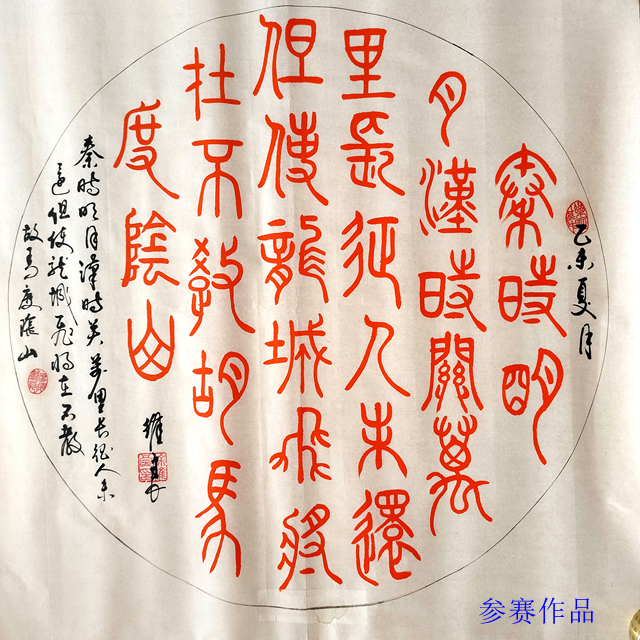 乙未夏月
秦時明
月漢時關萬
里長征人未還
但使龍城飛將
在不教胡馬
度陰山
維
秦時明月漢時关萬里长征人未
還但使龙城飛将在不教
胡马度陰山
参赛作品